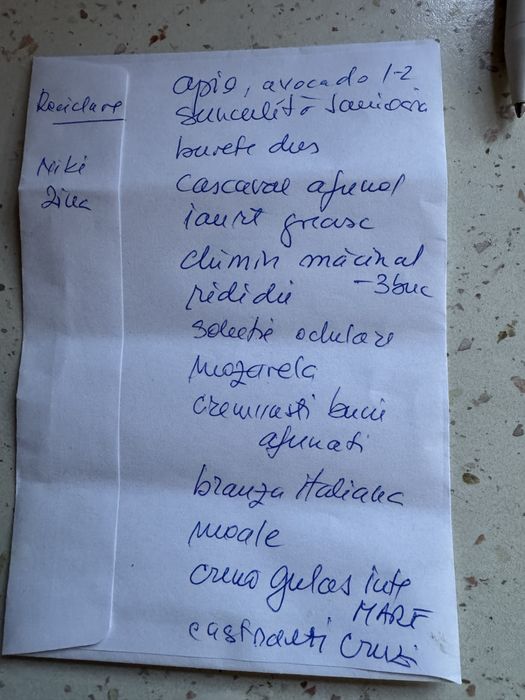 Reciclare
Niki
Zina
apio, avocado 1-2
burete dus
cascaval afumat
iaurt grecesc
chimin măcinat
ridichii -3buc
solutie oculare
mozarela
cremvusti bucii
afumati
branza italiana
moale
crema gulas iute
MARE
castraveti cruzi